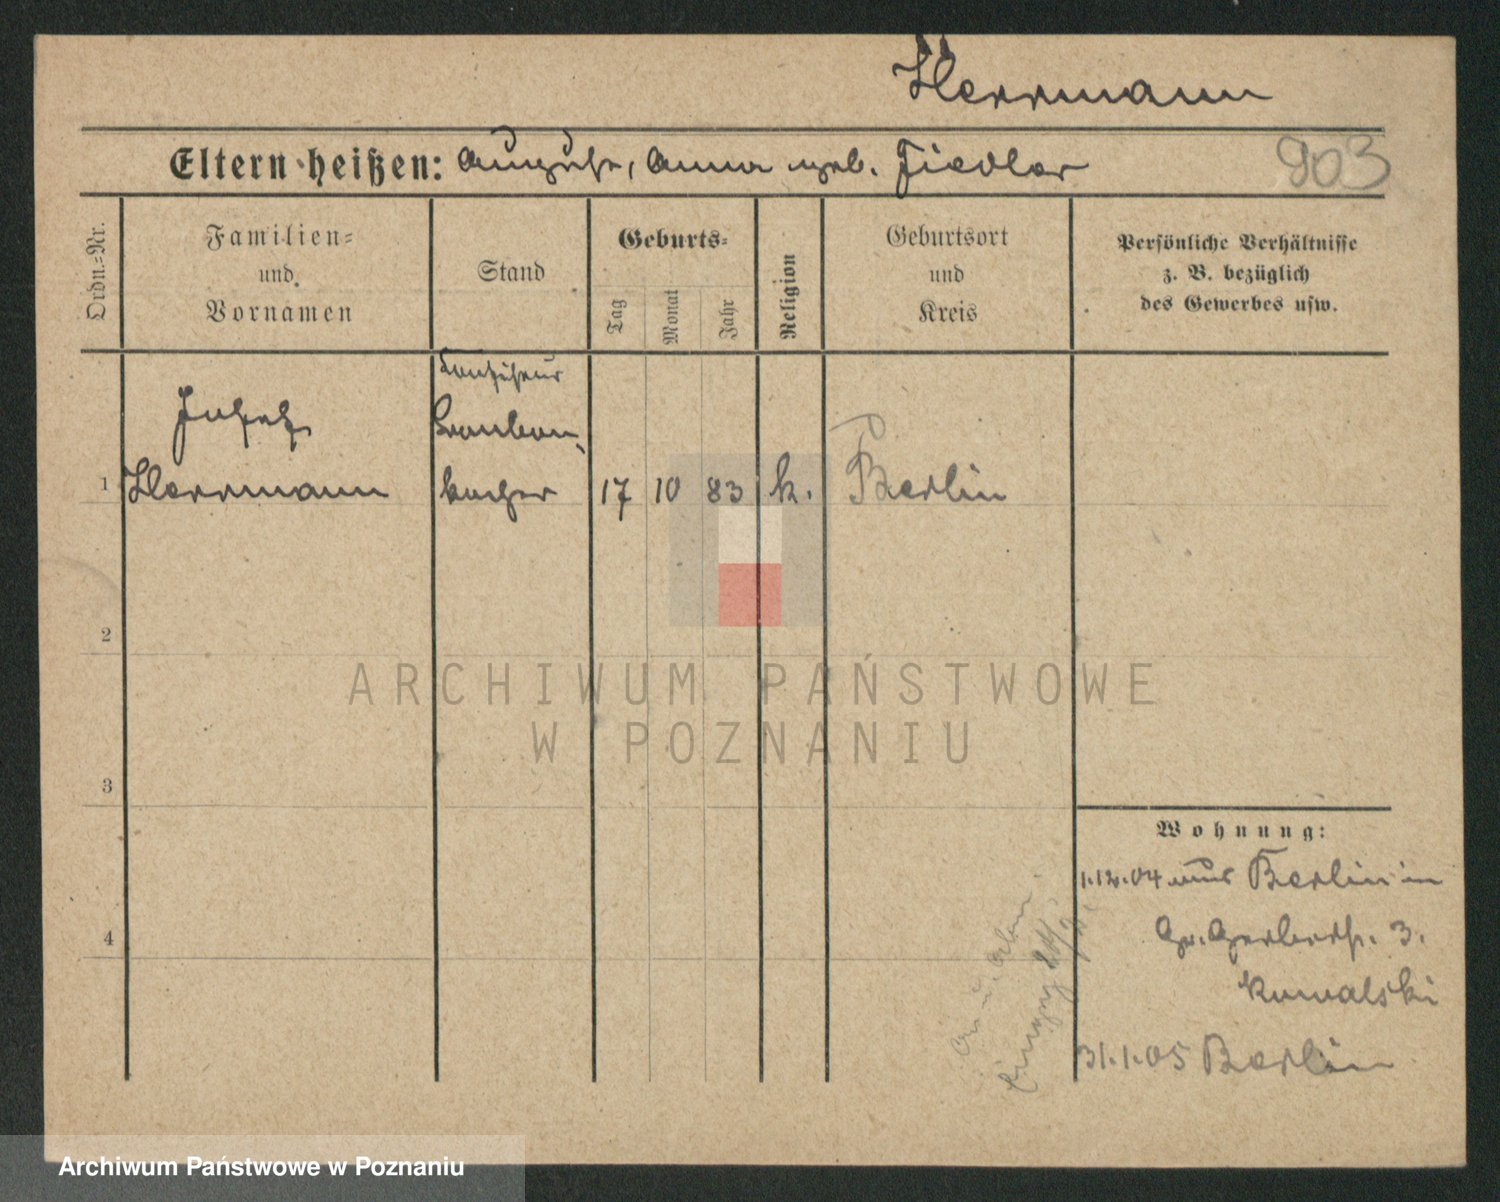 Herrmann
Eltern heißen: August, Anna geb. Fiedler
903
Ordn.=Nr.
Familien= und Vornamen
Stand
Geburts=
Tag
Monat
Jahr
Religion
Geburtsort und Kreis
Persönliche Verhältnisse z. B. bezüglich des Gewerbes usw.
Joseph
1 Herrmann 17 10 83 k. Berlin
2
3
4
Wohnung:
1.12.04 aus Berlin in
Gr. Gerberstr. 3.
Kowalski
31.1.05 Berlin
ARCHIWUM PAŃSTWOWE
W POZNANIU
Archiwum Państwowe w Poznaniu